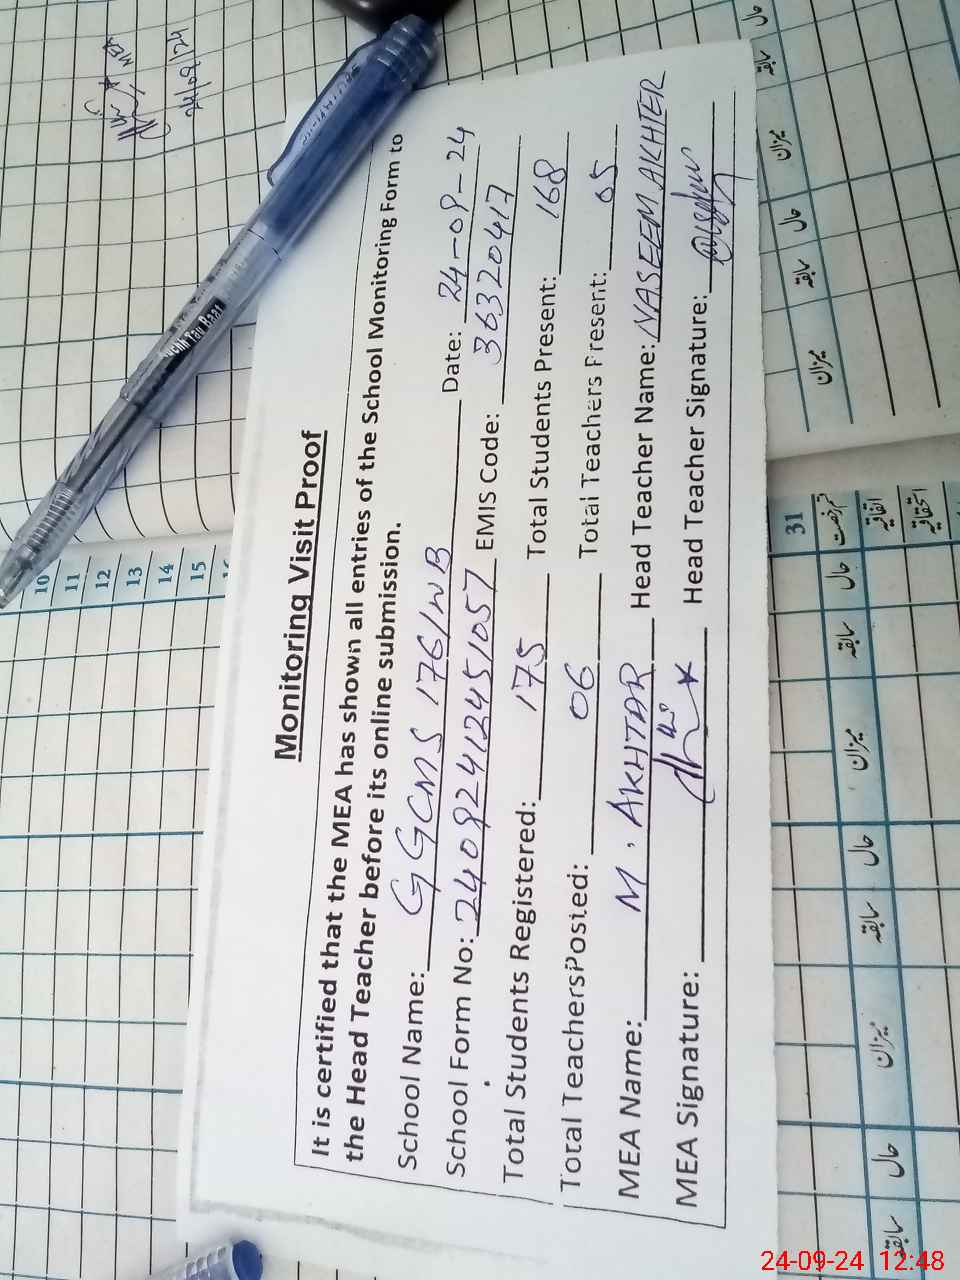 Monitoring Visit Proof
It is certified that the MEA has shown all entries of the School Monitoring Form to
the Head Teacher before its online submission.
School Name: GGCMS 176/WB Date: 24-09-24
School Form No: 24092412451057 EMIS Code: 36320417
Total Students Registered: 175 Total Students Present: 168
Total Teachers Posted: 06 Total Teachers Present: 05
MEA Name: M. AKHTAR Head Teacher Name: NASEEM AKHTER
MEA Signature: Head Teacher Signature:
MEA
24/09/24
10
11
12
13
14
15
31
میزان
حال
سابقہ
میزان
حال
سابقہ
میزان
حال
سابقہ
میزان
حال
سابقہ
میزان
حال
سابقہ
اتفاقیہ
استحقاقیہ
24-09-24 12:48